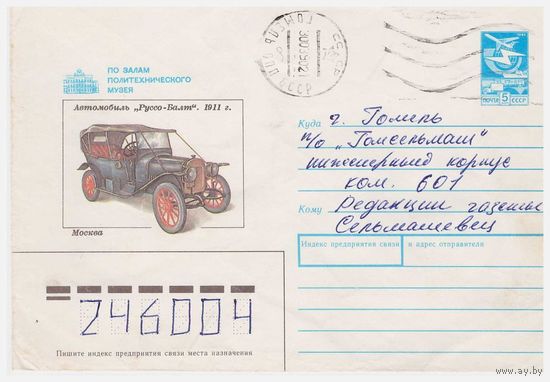 ПО ЗАЛАМ
ПОЛИТЕХНИЧЕСКОГО
МУЗЕЯ
Автомобиль „Руссо-Балт“. 1911 г.
Москва
ГОМЕЛЬ
СССР
ПОЧТА СССР
5
Куда г. Гомель
п/о „Гомсельмаш“
инженерный корпус
ком. 601
Кому Редакции газеты
Сельмашевец
Индекс предприятия связи и адрес отправителя
246004
Пишите индекс предприятия связи места назначения
www.ay.by